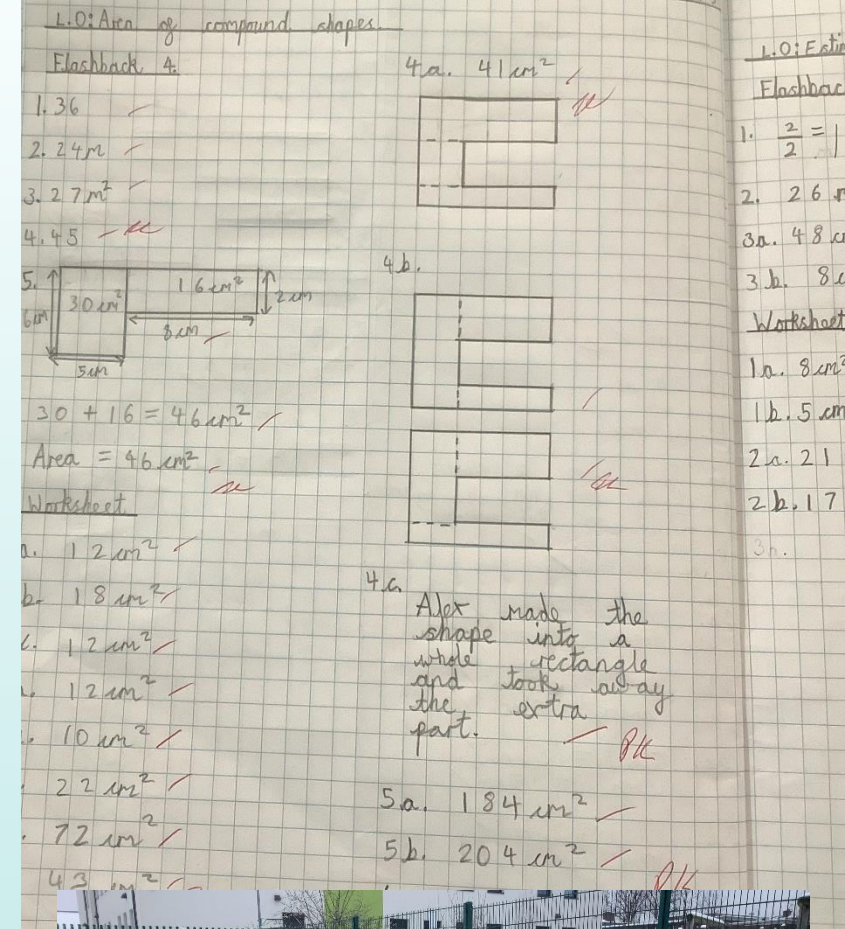 L.O: Area of compound shapes.
Flashback 4.
1. 36
2. 24m
3. 27m²
4. 45
5.
30cm²
16cm²
2cm
6cm
8cm
5cm
30 + 16 = 46cm²
Area = 46cm²
Worksheet
a. 12cm²
b. 18cm²
c. 12cm²
12cm²
10cm²
22cm²
72cm²
43 cm²
4a. 41cm²
4b.
4c.
Alex made the
shape into a
whole rectangle
and took away
the extra
part.
PK
5a. 184cm²
5b. 204cm²
PK
L.O: Esti
Flashbac
1. 2/2 = 1
2. 26
3a. 48c
3b. 8c
Worksheet
1a. 8cm²
1b. 5cm
2a. 21
2b. 17